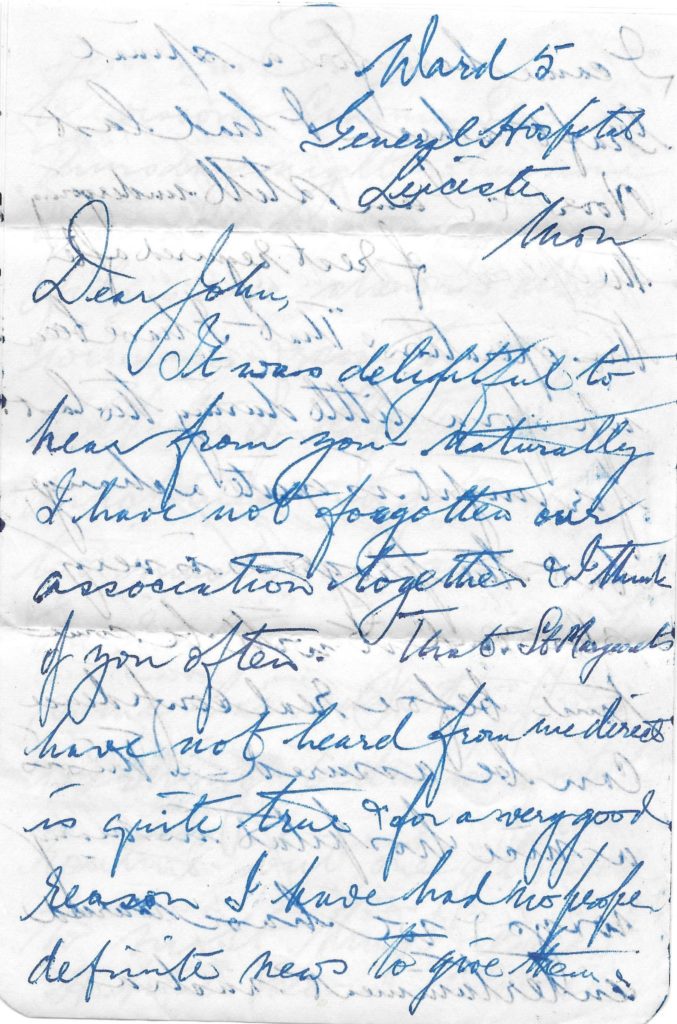 Ward 5
General Hospital
Leicester
Mon
Dear John,
It was delightful to
hear from you naturally
I have not forgotten our
association together & I think
of you often. That St Margarets
have not heard from me direct
is quite true & for a very good
reason I have had no proper
definite news to give them.